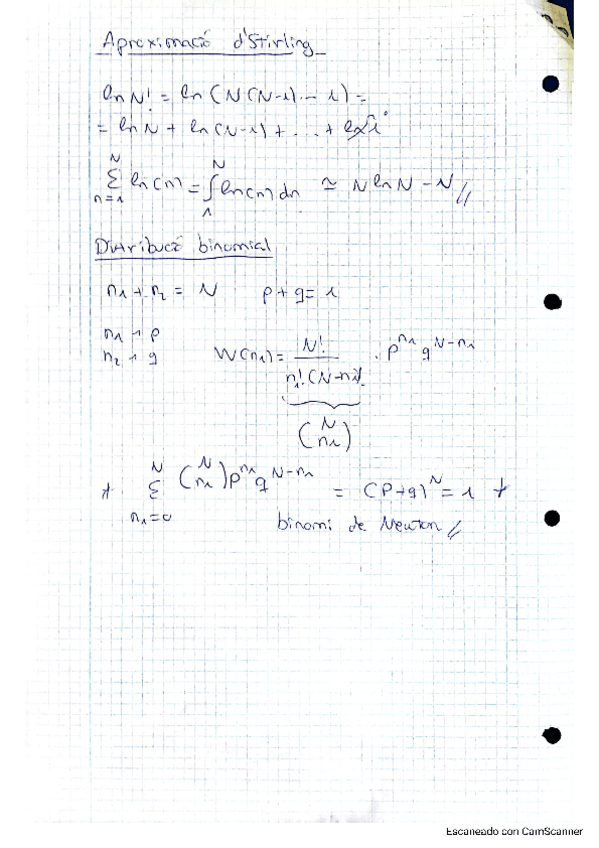 Aproximació d'Stirling
ln N! = ln (N(N-1)... 1) =
= ln N + ln(N-1) + ... + ln 1 0
N Σ n=1 ln(n) = ∫ N 1 ln(n) dn ≃ N ln N - N //
Distribució binomial
n1 + n2 = N p + q = 1
n1 → p
n2 → q W(n1) = N! / n1! (N-n1)! · p^n1 q^N-n1
(N n1)
* N Σ n1=0 (N n1) p^n1 q^N-n1 = (p+q)^N = 1 *
binomi de Newton //
Escaneado con CamScanner